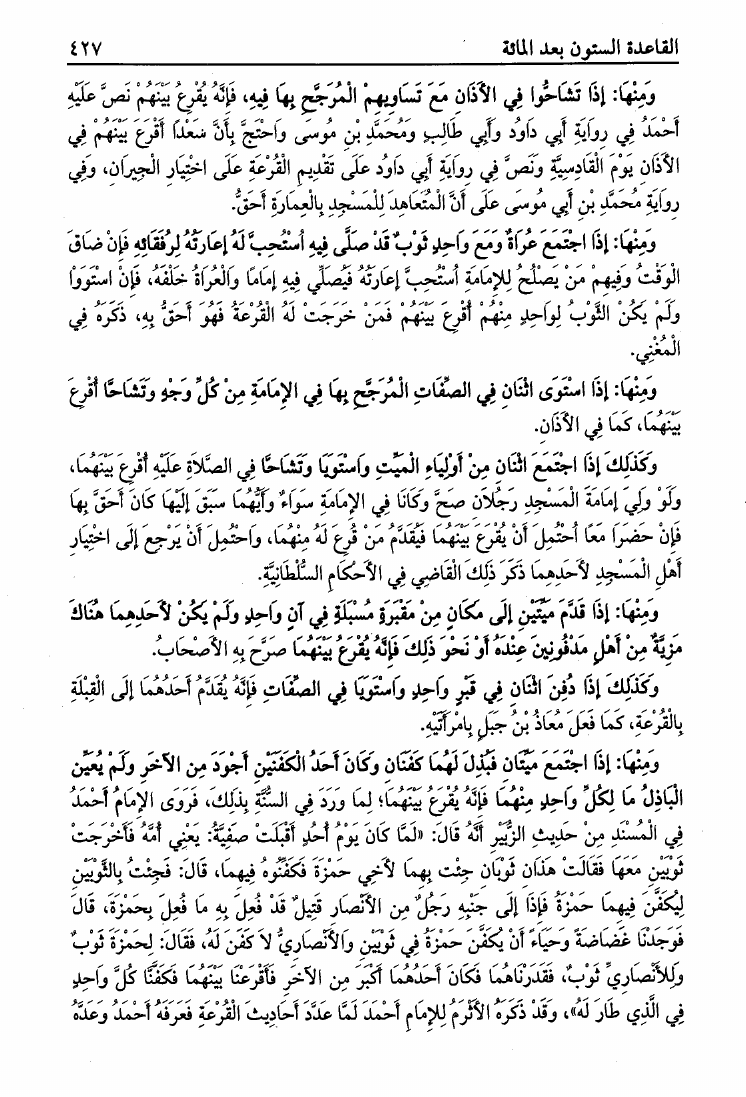 القاعدة الستون بعد المائة ٤٢٧
وَمِنْهَا: إِذَا تَشَاحُّوا فِي الأَذَانِ مَعَ تَسَاوِيهِمْ الْمُرَجَّحِ بِهَا فِيهِ، فَإِنَّهُ يُقْرَعُ بَيْنَهُمْ نَصَّ عَلَيْهِ
أَحْمَدُ فِي رِوَايَةِ أَبِي دَاوُد وَأَبِي طَالِبٍ وَمُحَمَّدِ بْنِ مُوسَى وَاحْتَجَّ بِأَنَّ سَعْدًا أَقْرَعَ بَيْنَهُمْ فِي
الأَذَانِ يَوْمَ الْقَادِسِيَّةِ وَنَصَّ فِي رِوَايَةِ أَبِي دَاوُد عَلَى تَقْدِيمِ الْقُرْعَةِ عَلَى اخْتِيَارِ الْجِيرَانِ، وَفِي
رِوَايَةِ مُحَمَّدِ بْنِ أَبِي مُوسَى عَلَى أَنَّ الْمُتَعَاهِدَ لِلْمَسْجِدِ بِالْعِمَارَةِ أَحَقُّ.
وَمِنْهَا: إِذَا اجْتَمَعَ عُرَاةٌ وَمَعَ وَاحِدٍ ثَوْبٌ قَدْ صَلَّى فِيهِ اُسْتُحِبَّ لَهُ إعَارَتُهُ لِرُفَقَائِهِ فَإِنْ ضَاقَ
الْوَقْتُ وَفِيهِمْ مَنْ يَصْلُحُ لِلإِمَامَةِ اُسْتُحِبَّ إعَارَتُهُ فَيُصَلِّي فِيهِ إمَامًا وَالْعُرَاةُ خَلْفَهُ، فَإِنْ اسْتَوَوْا
وَلَمْ يَكُنْ الثَّوْبُ لِوَاحِدٍ مِنْهُمْ أُقْرِعَ بَيْنَهُمْ فَمَنْ خَرَجَتْ لَهُ الْقُرْعَةُ فَهُوَ أَحَقُّ بِهِ، ذَكَرَهُ فِي
الْمُغْنِي.
وَمِنْهَا: إِذَا اسْتَوَى اثْنَانِ فِي الصِّفَاتِ الْمُرَجَّحِ بِهَا فِي الإِمَامَةِ مِنْ كُلِّ وَجْهٍ وَتَشَاحَّا أُقْرِعَ
بَيْنَهُمَا، كَمَا فِي الأَذَانِ.
وَكَذَلِكَ إِذَا اجْتَمَعَ اثْنَانِ مِنْ أَوْلِيَاءِ الْمَيِّتِ وَاسْتَوَيَا وَتَشَاحَّا فِي الصَّلَاةِ عَلَيْهِ أُقْرِعَ بَيْنَهُمَا،
وَلَوْ وَلِيَ إمَامَةَ الْمَسْجِدِ رَجُلَانِ صَحَّ وَكَانَا فِي الإِمَامَةِ سَوَاءً وَأَيُّهُمَا سَبَقَ إِلَيْهَا كَانَ أَحَقَّ بِهَا
فَإِنْ حَضَرَا مَعًا اُحْتُمِلَ أَنْ يُقْرَعَ بَيْنَهُمَا فَيُقَدَّمُ مَنْ قُرِعَ لَهُ مِنْهُمَا، وَاحْتُمِلَ أَنْ يَرْجِعَ إِلَى اخْتِيَارِ
أَهْلِ الْمَسْجِدِ لأَحَدِهِمَا ذَكَرَ ذَلِكَ الْقَاضِي فِي الأَحْكَامِ السُّلْطَانِيَّةِ.
وَمِنْهَا: إِذَا قَدَّمَ مَيِّتَيْنِ إِلَى مَكَانٍ مِنْ مَقْبَرَةٍ مُسْبَلَةٍ فِي آنٍ وَاحِدٍ وَلَمْ يَكُنْ لأَحَدِهِمَا هُنَاكَ
مَزِيَّةٌ مِنْ أَهْلٍ مَدْفُونِينَ عِنْدَهُ أَوْ نَحْوَ ذَلِكَ فَإِنَّهُ يُقْرَعُ بَيْنَهُمَا صَرَّحَ بِهِ الأَصْحَابُ.
وَكَذَلِكَ إِذَا دُفِنَ اثْنَانِ فِي قَبْرٍ وَاحِدٍ وَاسْتَوَيَا فِي الصِّفَاتِ فَإِنَّهُ يُقَدَّمُ أَحَدُهُمَا إِلَى الْقِبْلَةِ
بِالْقُرْعَةِ، كَمَا فَعَلَ مُعَاذُ بْنُ جَبَلٍ بِامْرَأَتَيْهِ.
وَمِنْهَا: إِذَا اجْتَمَعَ مَيِّتَانِ فَبُذِلَ لَهُمَا كَفَنَانِ وَكَانَ أَحَدُ الْكَفَنَيْنِ أَجْوَدَ مِن الآخَرِ وَلَمْ يُعَيِّنِ
الْبَاذِلُ مَا لِكُلِّ وَاحِدٍ مِنْهُمَا فَإِنَّهُ يُقْرَعُ بَيْنَهُمَا؛ لِمَا وَرَدَ فِي السُّنَّةِ بِذَلِكَ، فَرَوَى الإِمَامُ أَحْمَدُ
فِي الْمُسْنَدِ مِنْ حَدِيثِ الزُّبَيْرِ أَنَّهُ قَالَ: «لَمَّا كَانَ يَوْمُ أُحُدٍ أَقْبَلَتْ صَفِيَّةُ: يَعْنِي أُمَّهُ فَأَخْرَجَتْ
ثَوْبَيْنِ مَعَهَا فَقَالَتْ هَذَانِ ثَوْبَانِ جِئْت بِهِمَا لأَخِي حَمْزَةَ فَكَفِّنُوهُ فِيهِمَا، قَالَ: فَجِئْتُ بِالثَّوْبَيْنِ
لِيُكَفَّنَ فِيهِمَا حَمْزَةُ فَإِذَا إِلَى جَنْبِهِ رَجُلٌ مِن الأَنْصَارِ قَتِيلٌ قَدْ فُعِلَ بِهِ مَا فُعِلَ بِحَمْزَةَ، قَالَ
فَوَجَدْنَا غَضَاضَةً وَحَيَاءً أَنْ يُكَفَّنَ حَمْزَةُ فِي ثَوْبَيْنِ وَالأَنْصَارِيُّ لَا كَفَنَ لَهُ، فَقَالَ: لِحَمْزَةَ ثَوْبٌ
وَلِلأَنْصَارِيِّ ثَوْبٌ، فَقَدَرْنَاهُمَا فَكَانَ أَحَدُهُمَا أَكْبَرَ مِن الآخَرِ فَأَقْرَعْنَا بَيْنَهُمَا فَكَفَّنَّا كُلَّ وَاحِدٍ
فِي الَّذِي طَارَ لَهُ»، وَقَدْ ذَكَرَهُ الأَثْرَمُ لِلإِمَامِ أَحْمَدَ لَمَّا عَدَّدَ أَحَادِيثَ الْقُرْعَةِ فَعَرَفَهُ أَحْمَدُ وَعَدَّهُ